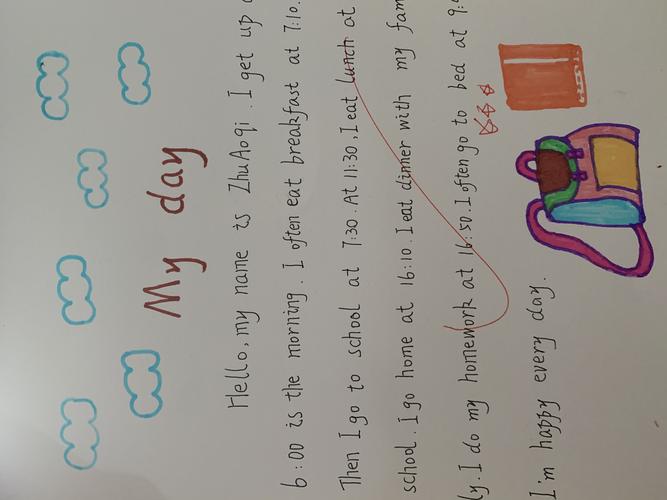 My day
Hello, my name is ZhuAoqi. I get up
6:00 is the morning. I often eat breakfast at 7:10.
Then I go to school at 7:30. At 11:30. I eat lunch at
school. I go home at 16:10. I eat dinner with my fam
ly. I do my homework at 16:50. I often go to bed at 9:
I'm happy every day.